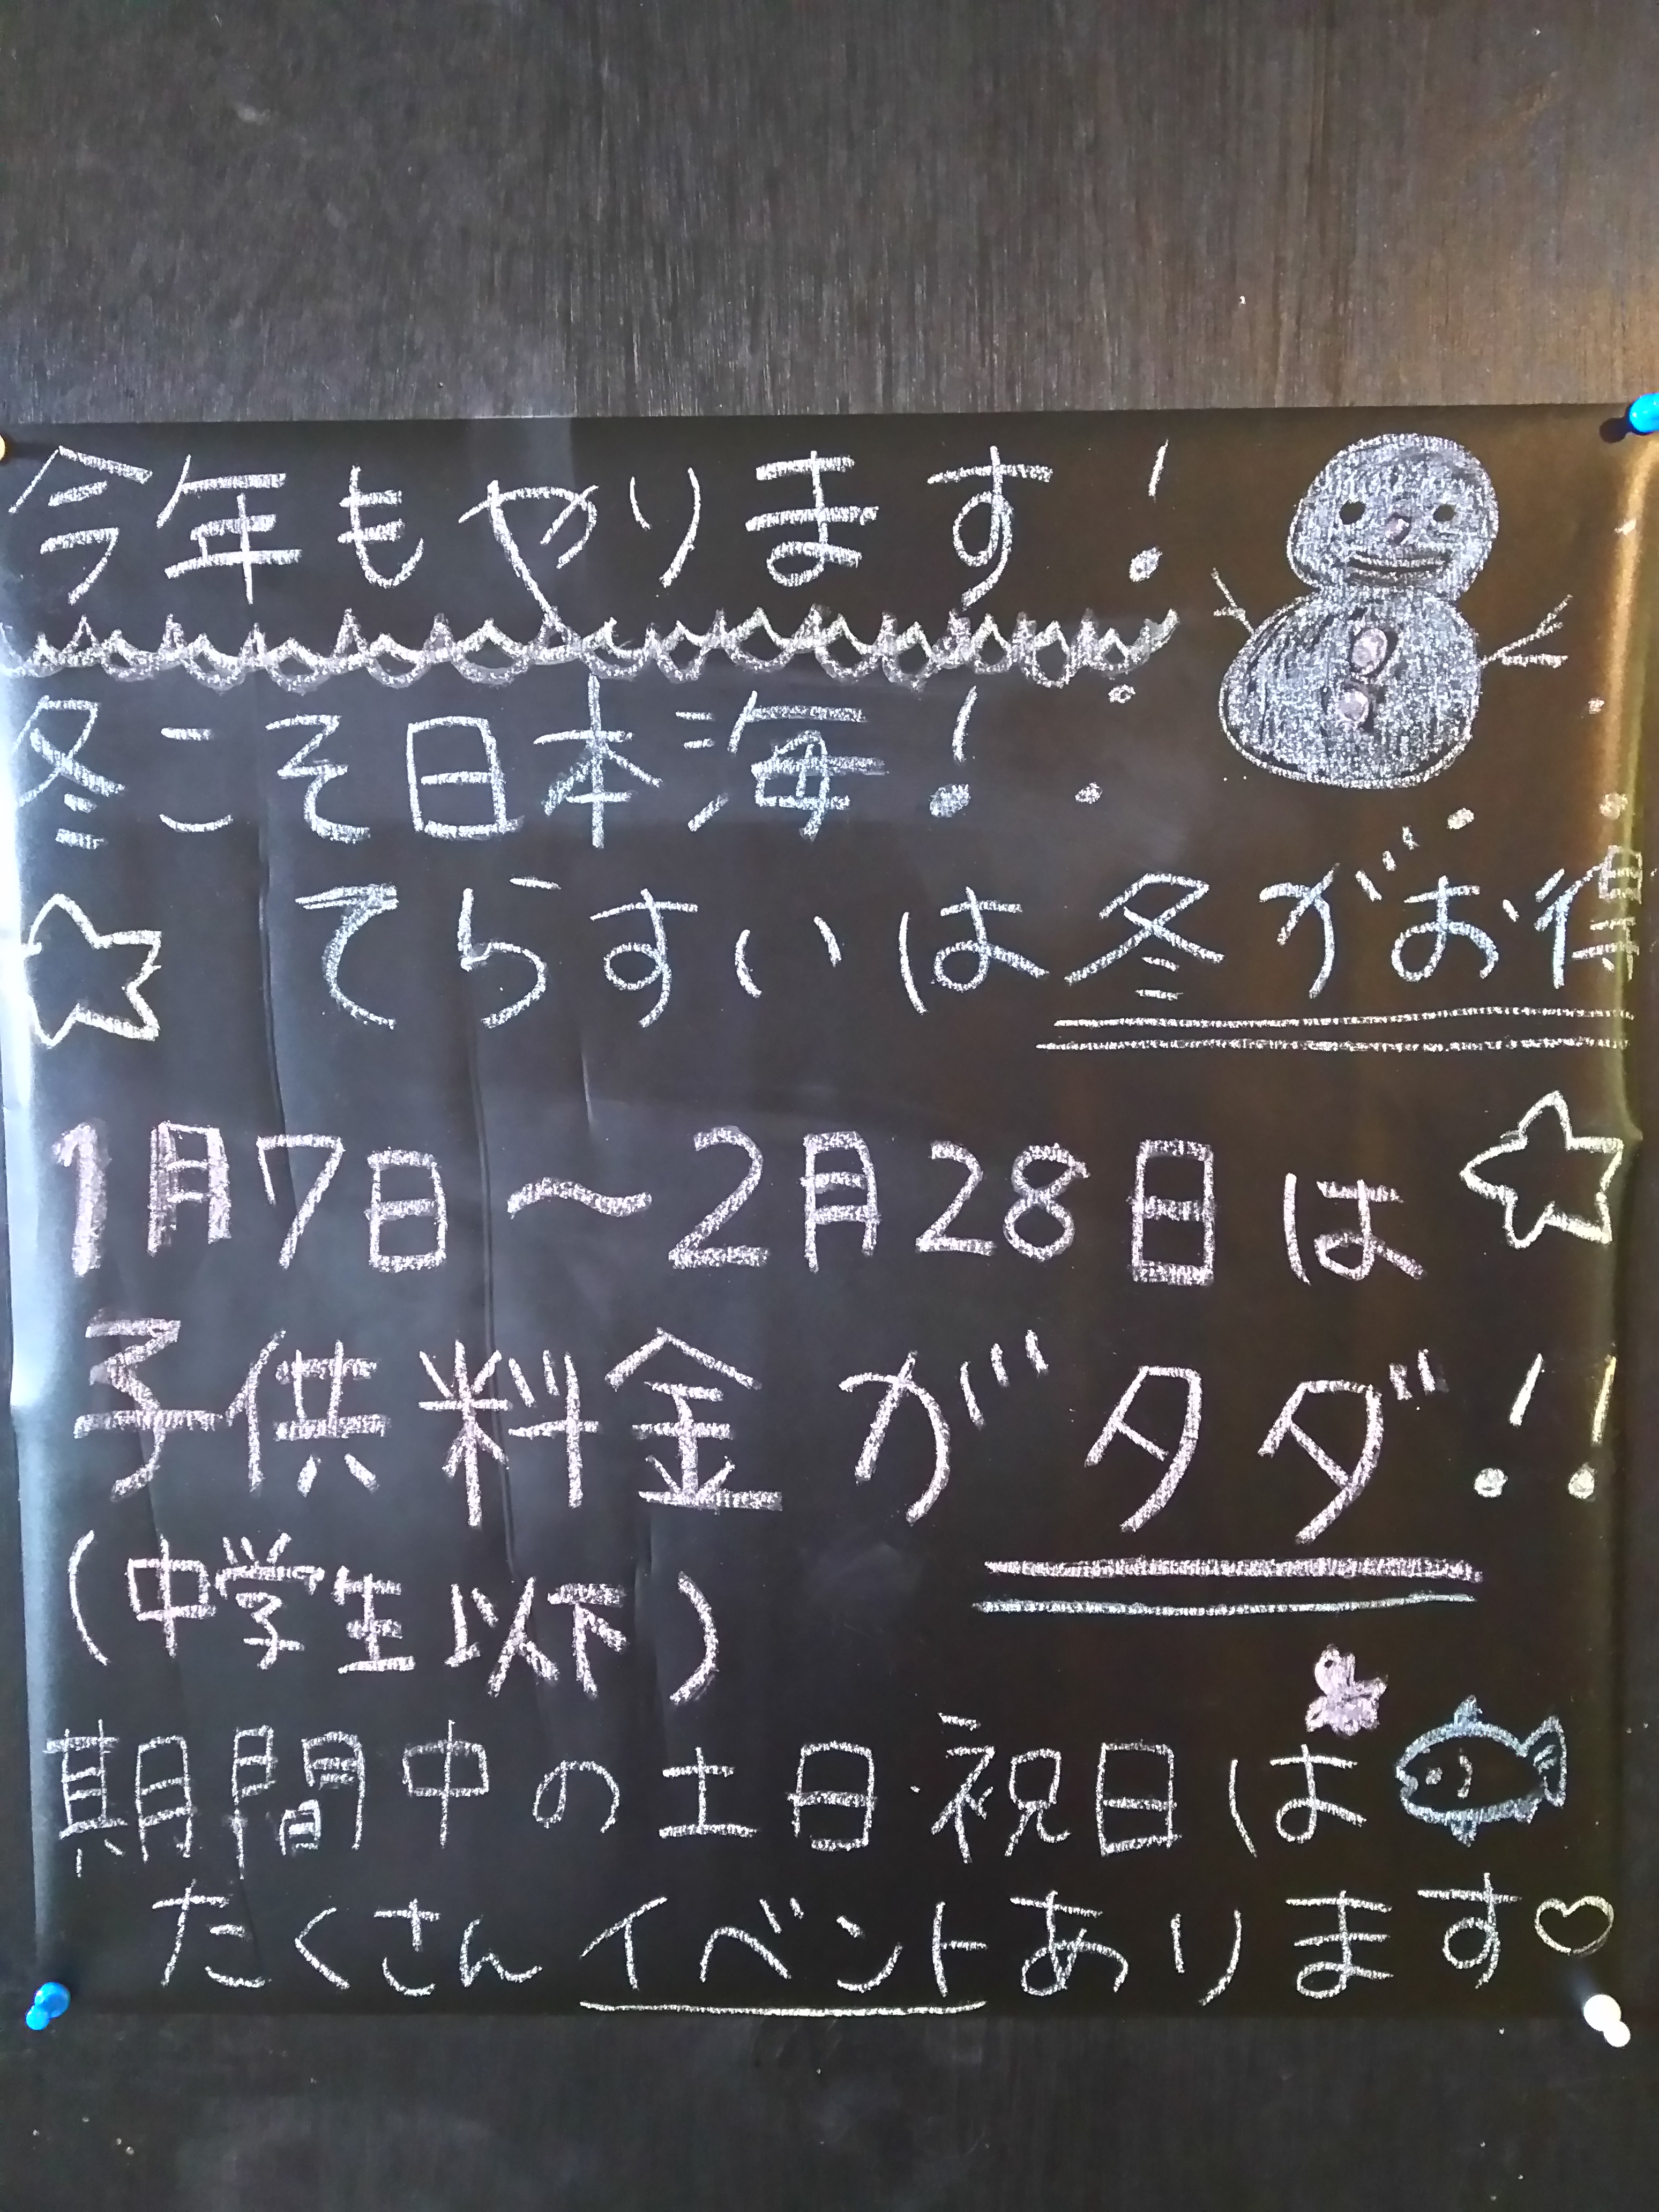 今年もやります!
冬こそ日本海!
てらすいは冬がお得
1月7日〜2月28日は
子供料金がタダ!!
(中学生以下)
期間中の土日・祝日は
たくさんイベントあります♡